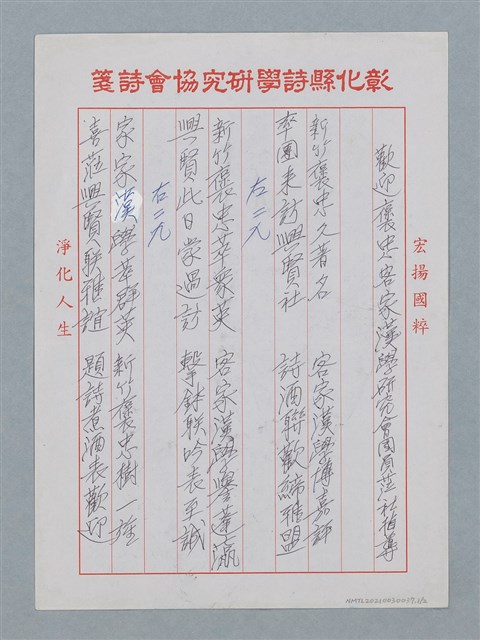 彰化縣詩學研究協會詩箋
宏揚國粹
歡迎褒忠客家漢學研究會團員蒞社指導
新竹褒忠久著名　客家漢學博嘉評
率團来訪興賢社　詩酒聯歡締雅盟
右二九
新竹褒忠萃眾英　客家漢學譽蓬瀛
興賢此日蒙過訪　擊鉢联吟表至誠
右二九
家家漢學萃群英　新竹褒忠樹一旌
喜蒞興賢联雅誼　題詩煮酒表歡迎
淨化人生